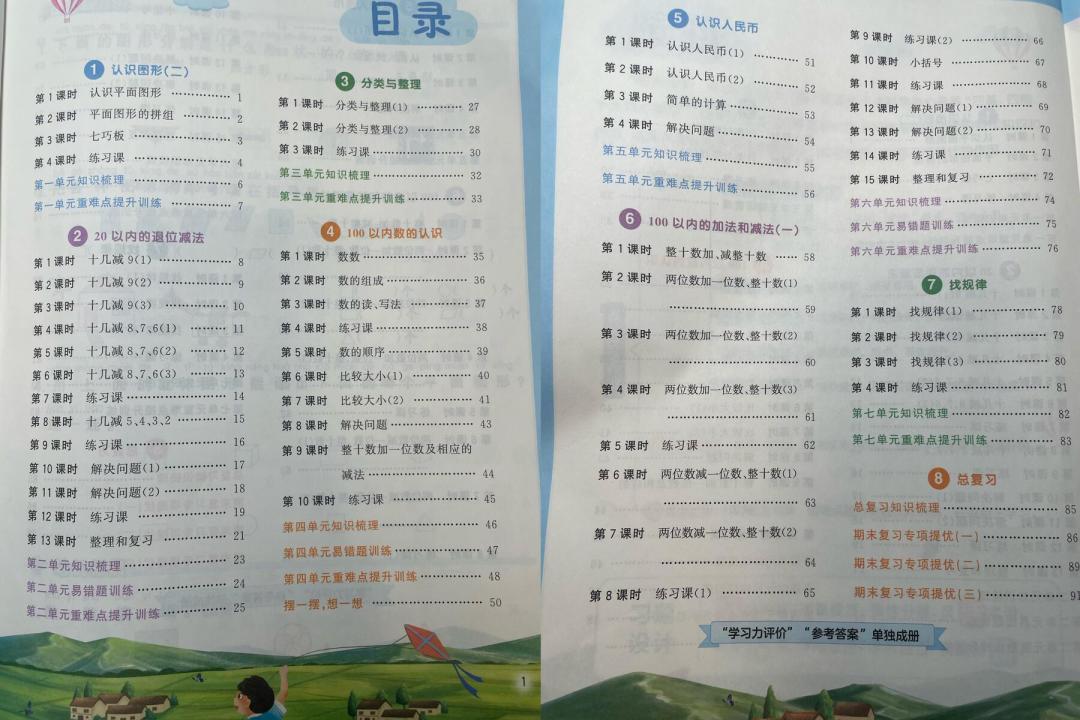 目录
1 认识图形(二)
第1课时 认识平面图形 ………… 1
第2课时 平面图形的拼组 ………… 2
第3课时 七巧板 ………… 3
第4课时 练习课 ………… 4
第一单元知识梳理 ………… 6
第一单元重难点提升训练 ………… 7
2 20以内的退位减法
第1课时 十几减9(1) ………… 8
第2课时 十几减9(2) ………… 9
第3课时 十几减9(3) ………… 10
第4课时 十几减8、7、6(1) ………… 11
第5课时 十几减8、7、6(2) ………… 12
第6课时 十几减8、7、6(3) ………… 13
第7课时 练习课 ………… 14
第8课时 十几减5、4、3、2 ………… 15
第9课时 练习课 ………… 16
第10课时 解决问题(1) ………… 17
第11课时 解决问题(2) ………… 18
第12课时 练习课 ………… 19
第13课时 整理和复习 ………… 21
第二单元知识梳理 ………… 23
第二单元易错题训练 ………… 24
第二单元重难点提升训练 ………… 25
3 分类与整理
第1课时 分类与整理(1) ………… 27
第2课时 分类与整理(2) ………… 28
第3课时 练习课 ………… 30
第三单元知识梳理 ………… 32
第三单元重难点提升训练 ………… 33
4 100以内数的认识
第1课时 数数 ………… 35
第2课时 数的组成 ………… 36
第3课时 数的读、写法 ………… 37
第4课时 练习课 ………… 38
第5课时 数的顺序 ………… 39
第6课时 比较大小(1) ………… 40
第7课时 比较大小(2) ………… 41
第8课时 解决问题 ………… 43
第9课时 整十数加一位数及相应的
减法 ………… 44
第10课时 练习课 ………… 45
第四单元知识梳理 ………… 46
第四单元易错题训练 ………… 47
第四单元重难点提升训练 ………… 48
摆一摆,想一想 ………… 50
1
5 认识人民币
第1课时 认识人民币(1) ………… 51
第2课时 认识人民币(2) ………… 52
第3课时 简单的计算 ………… 53
第4课时 解决问题 ………… 54
第五单元知识梳理 ………… 55
第五单元重难点提升训练 ………… 56
6 100以内的加法和减法(一)
第1课时 整十数加、减整十数 …… 58
第2课时 两位数加一位数、整十数(1)
………… 59
第3课时 两位数加一位数、整十数(2)
………… 60
第4课时 两位数加一位数、整十数(3)
………… 61
第5课时 练习课 ………… 62
第6课时 两位数减一位数、整十数(1)
………… 63
第7课时 两位数减一位数、整十数(2)
………… 64
第8课时 练习课(1) ………… 65
第9课时 练习课(2) ………… 66
第10课时 小括号 ………… 67
第11课时 练习课 ………… 68
第12课时 解决问题(1) ………… 69
第13课时 解决问题(2) ………… 70
第14课时 练习课 ………… 71
第15课时 整理和复习 ………… 72
第六单元知识梳理 ………… 74
第六单元易错题训练 ………… 75
第六单元重难点提升训练 ………… 76
7 找规律
第1课时 找规律(1) ………… 78
第2课时 找规律(2) ………… 79
第3课时 找规律(3) ………… 80
第4课时 练习课 ………… 81
第七单元知识梳理 ………… 82
第七单元重难点提升训练 ………… 83
8 总复习
总复习知识梳理 ………… 85
期末复习专项提优(一) ………… 86
期末复习专项提优(二) ………… 89
期末复习专项提优(三) ………… 91
“学习力评价” “参考答案”单独成册